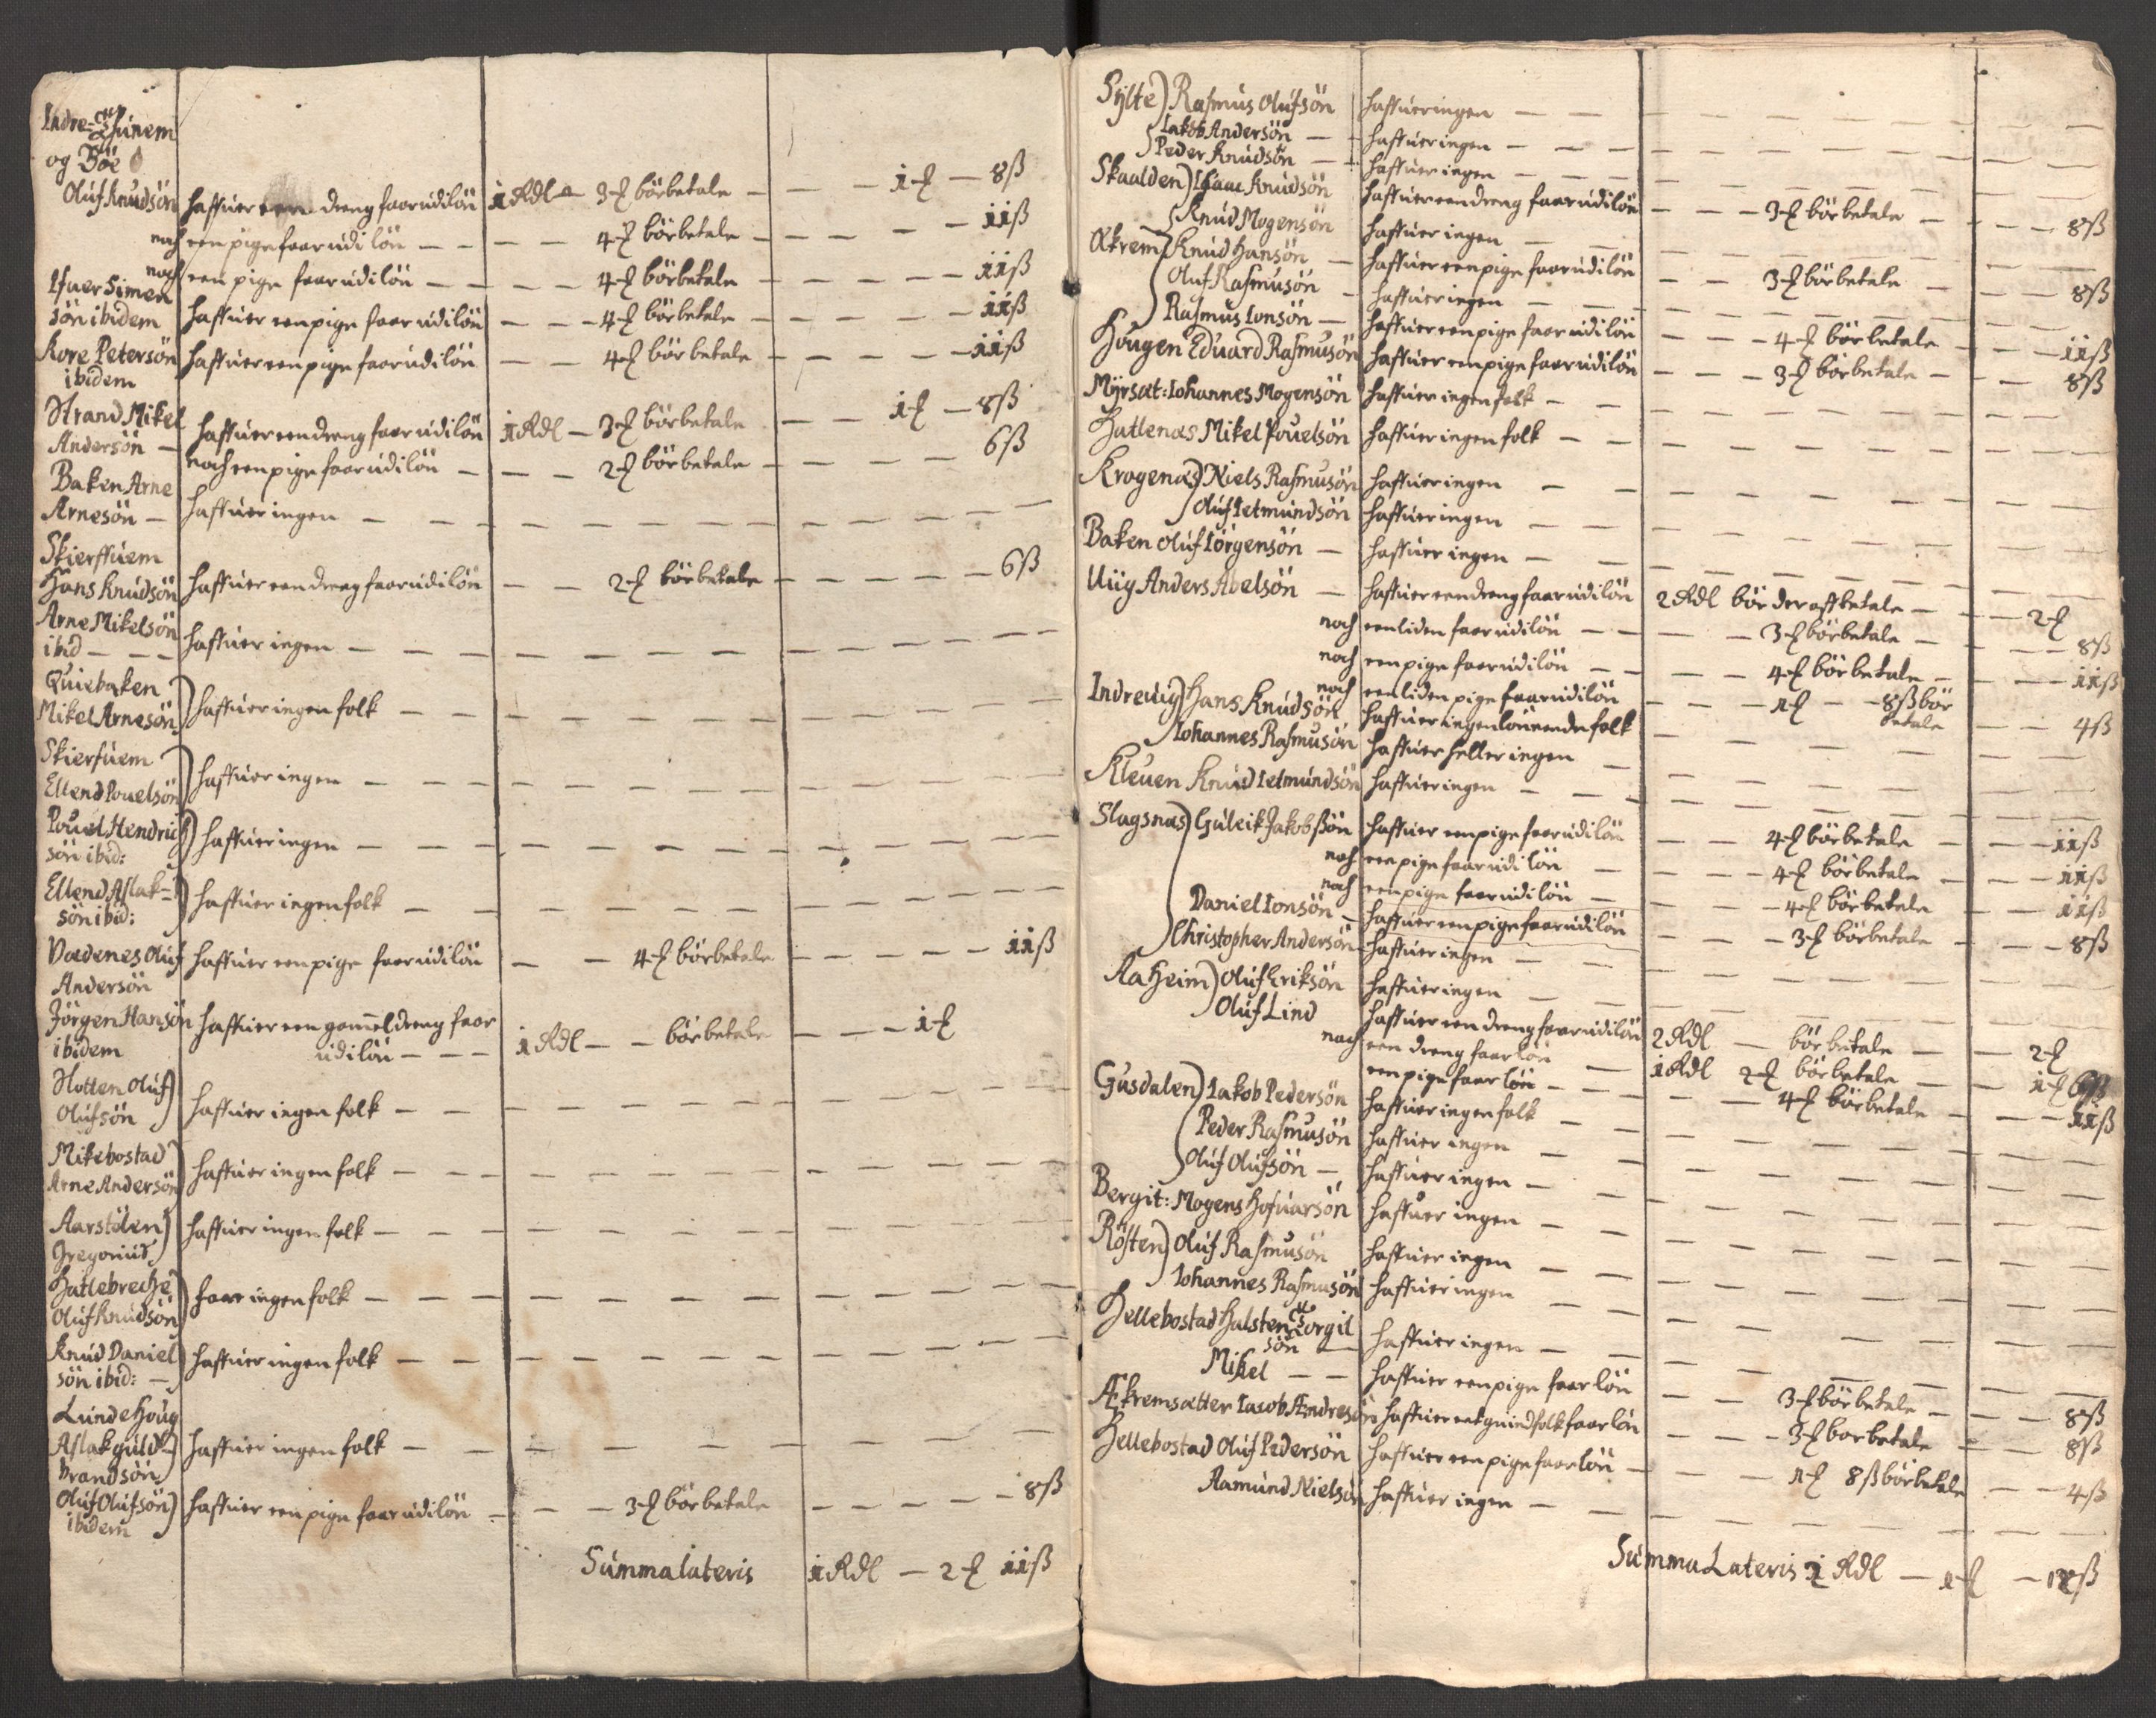 Indre-Thunem
og Böe
Oluf Knudsön haffuer een dreng faar udi lön 1 Rdl – 3 ₰ bör betale – – – 1 ₰ – 8 ß
noch een pige faar udi lön – – – – 4 ₰ bör betale – – – – – 11 ß
noch een pige faar udi lön – – – – 4 ₰ bör betale – – – – – 11 ß
Ifuer Simen
sön ibidem haffuer een pige faar udi lön – – – 4 ₰ bör betale – – – – – 11 ß
Kore Petersön haffuer een pige faar udi lön – – 4 ₰ bör betale – – – – – 11 ß
ibidem
Strand Mikel
Andersön – haffuer een dreng faar udi lön 1 Rdl – 3 ₰ bör betale – – – 1 ₰ – 8 ß
noch een pige faar udi lön – – – 2 ₰ bör betale – – – – 6 ß
Baken Arne
Arnesön – haffuer ingen – – – –
Skierffuem
Hans Knudsön haffuer een dreng faar udi lön – – 2 ₰ bör betale – – – – – 6 ß
Arne Mikelsön
ibid – – – haffuer ingen – – – –
Quiebaken
Mikel Arnesön haffuer ingen folk – – – –
Skierfuem
Ellend Pouelsön haffuer ingen – – – –
Pouel Hendrich
sön ibid: haffuer ingen – – – –
Ellend Aslak-
sön ibid: haffuer ingen folk – – – –
Vædenes Oluf haffuer een pige faar udi lön – – 4 ₰ bör betale – – – – – 11 ß
Andersön
Jörgen Hansön haffuer een gammel dreng faar
ibidem udi lön – – – 1 Rdl – – bör betale – – – 1 ₰
Hotten Oluf
Olufsön haffuer ingen folk – – – –
Mikebostad
Arne Andersön haffuer ingen folk – – – –
Aarstölen haffuer ingen folk – – – –
Gregorius
Hatlebrecke
Oluf Knudsön faar ingen folk – – – –
Knud Daniel
sön ibid: – haffuer ingen folk – – – –
Lunde Houg
Aslak Guld- haffuer ingen folk – – – –
brandsön
Oluf Olufsön haffuer een pige faar udi lön – – – 3 ₰ bör betale – – – – – 8 ß
ibidem
Summa lateris 1 Rdl – 2 ₰ 11 ß
Sylte Rasmus Olufsön haffuer ingen – – –
Jakob Andersön – – haffuer ingen – – –
Peder Knudsön – – haffuer ingen – – –
Skaalden Isaac Knudsön haffuer een dreng faar udi lön – – – 3 ₰ bör betale – – – 8 ß
Knud Mogensön haffuer ingen – –
Akrem Knud Hansön – haffuer een pige faar udi lön – – 3 ₰ bör betale – – – 8 ß
Oluf Rasmusön – haffuer ingen – – –
Rasmus Ionsön – haffuer een pige faar udi lön – – – 4 ₰ bör betale – – – 11 ß
Hougen Eduard Rasmusön haffuer een pige faar udi lön – – – 3 ₰ bör betale – – – 8 ß
Myrsæt: Iohannes Mogensön haffuer ingen folk – –
Hatlenæs Mikel Pouelsön haffuer ingen folk – –
Krogenæs Niels Rasmusön haffuer ingen – –
Oluf Ietmundsön haffuer ingen – –
Baken Oluf Iörgensön – haffuer ingen – –
Uiig Anders Abelsön – haffuer een dreng faar udi lön 2 Rdl bör der aff betale – – – 2 ₰
noch een liden faar udi lön – – – – 3 ₰ bör betale – – – 8 ß
noch een pige faar udi lön – – – – 4 ₰ bör betale – – – 11 ß
noch een liden pige faar udi lön – – – 1 ₰ – – 8 ß bör
betale – – 4 ß
Indreuig Hans Knudsön haffuer ingen lönnende folk
Iohannes Rasmusön haffuer heller ingen –
Kleuen Knud Ietmundsön haffuer ingen – – –
Slagsnæs Guleik Jakobsön haffuer een pige faar udi lön – – 4 ₰ bör betale – – – 11 ß
noch een pige faar udi lön – – – 4 ₰ bör betale – – – 11 ß
noch een pige faar udi lön – – – 4 ₰ bör betale – – 11 ß
Daniel Ionsön – haffuer een pige faar udi lön – – – 3 ₰ bör betale – – – 8 ß
Christopher Andersön haffuer ingen – –
Aaheim Oluf Eriksön haffuer ingen – –
Oluf Lind haffuer een dreng faar udi lön 2 Rdl – bör betale – – 2 ₰
noch een dreng faar lön – 1 Rdl 2 ₰ bör betale – – 1 ₰ 6 ß
een pige faar lön – – – – 4 ₰ bör betale – – – 11 ß
Gusdalen Iakob Pedersön haffuer ingen folk – –
Peder Rasmusön haffuer ingen –
Oluf Olufsön – haffuer ingen –
Bergit: Mogens Hofuarsön haffuer ingen –
Rösten Oluf Rasmusön haffuer ingen –
Iohannes Rasmusön haffuer ingen –
Hellebostad Halsten Torgil
sön – haffuer ingen – –
Mikel – – haffuer een pige faar lön – – 3 ₰ bör betale – – – 8 ß
Ækremsætter Iacob Andresön haffuer eet quindfolk faar lön – – – 3 ₰ bör betale – – 8 ß
Hellebostad Oluf Pedersön haffuer een pige faar lön – – – 1 ₰ 8 ß bör betale – – 4 ß
Aamund Nielsön haffuer ingen – –
Summa Lateris 2 Rdl – 1 ₰ –